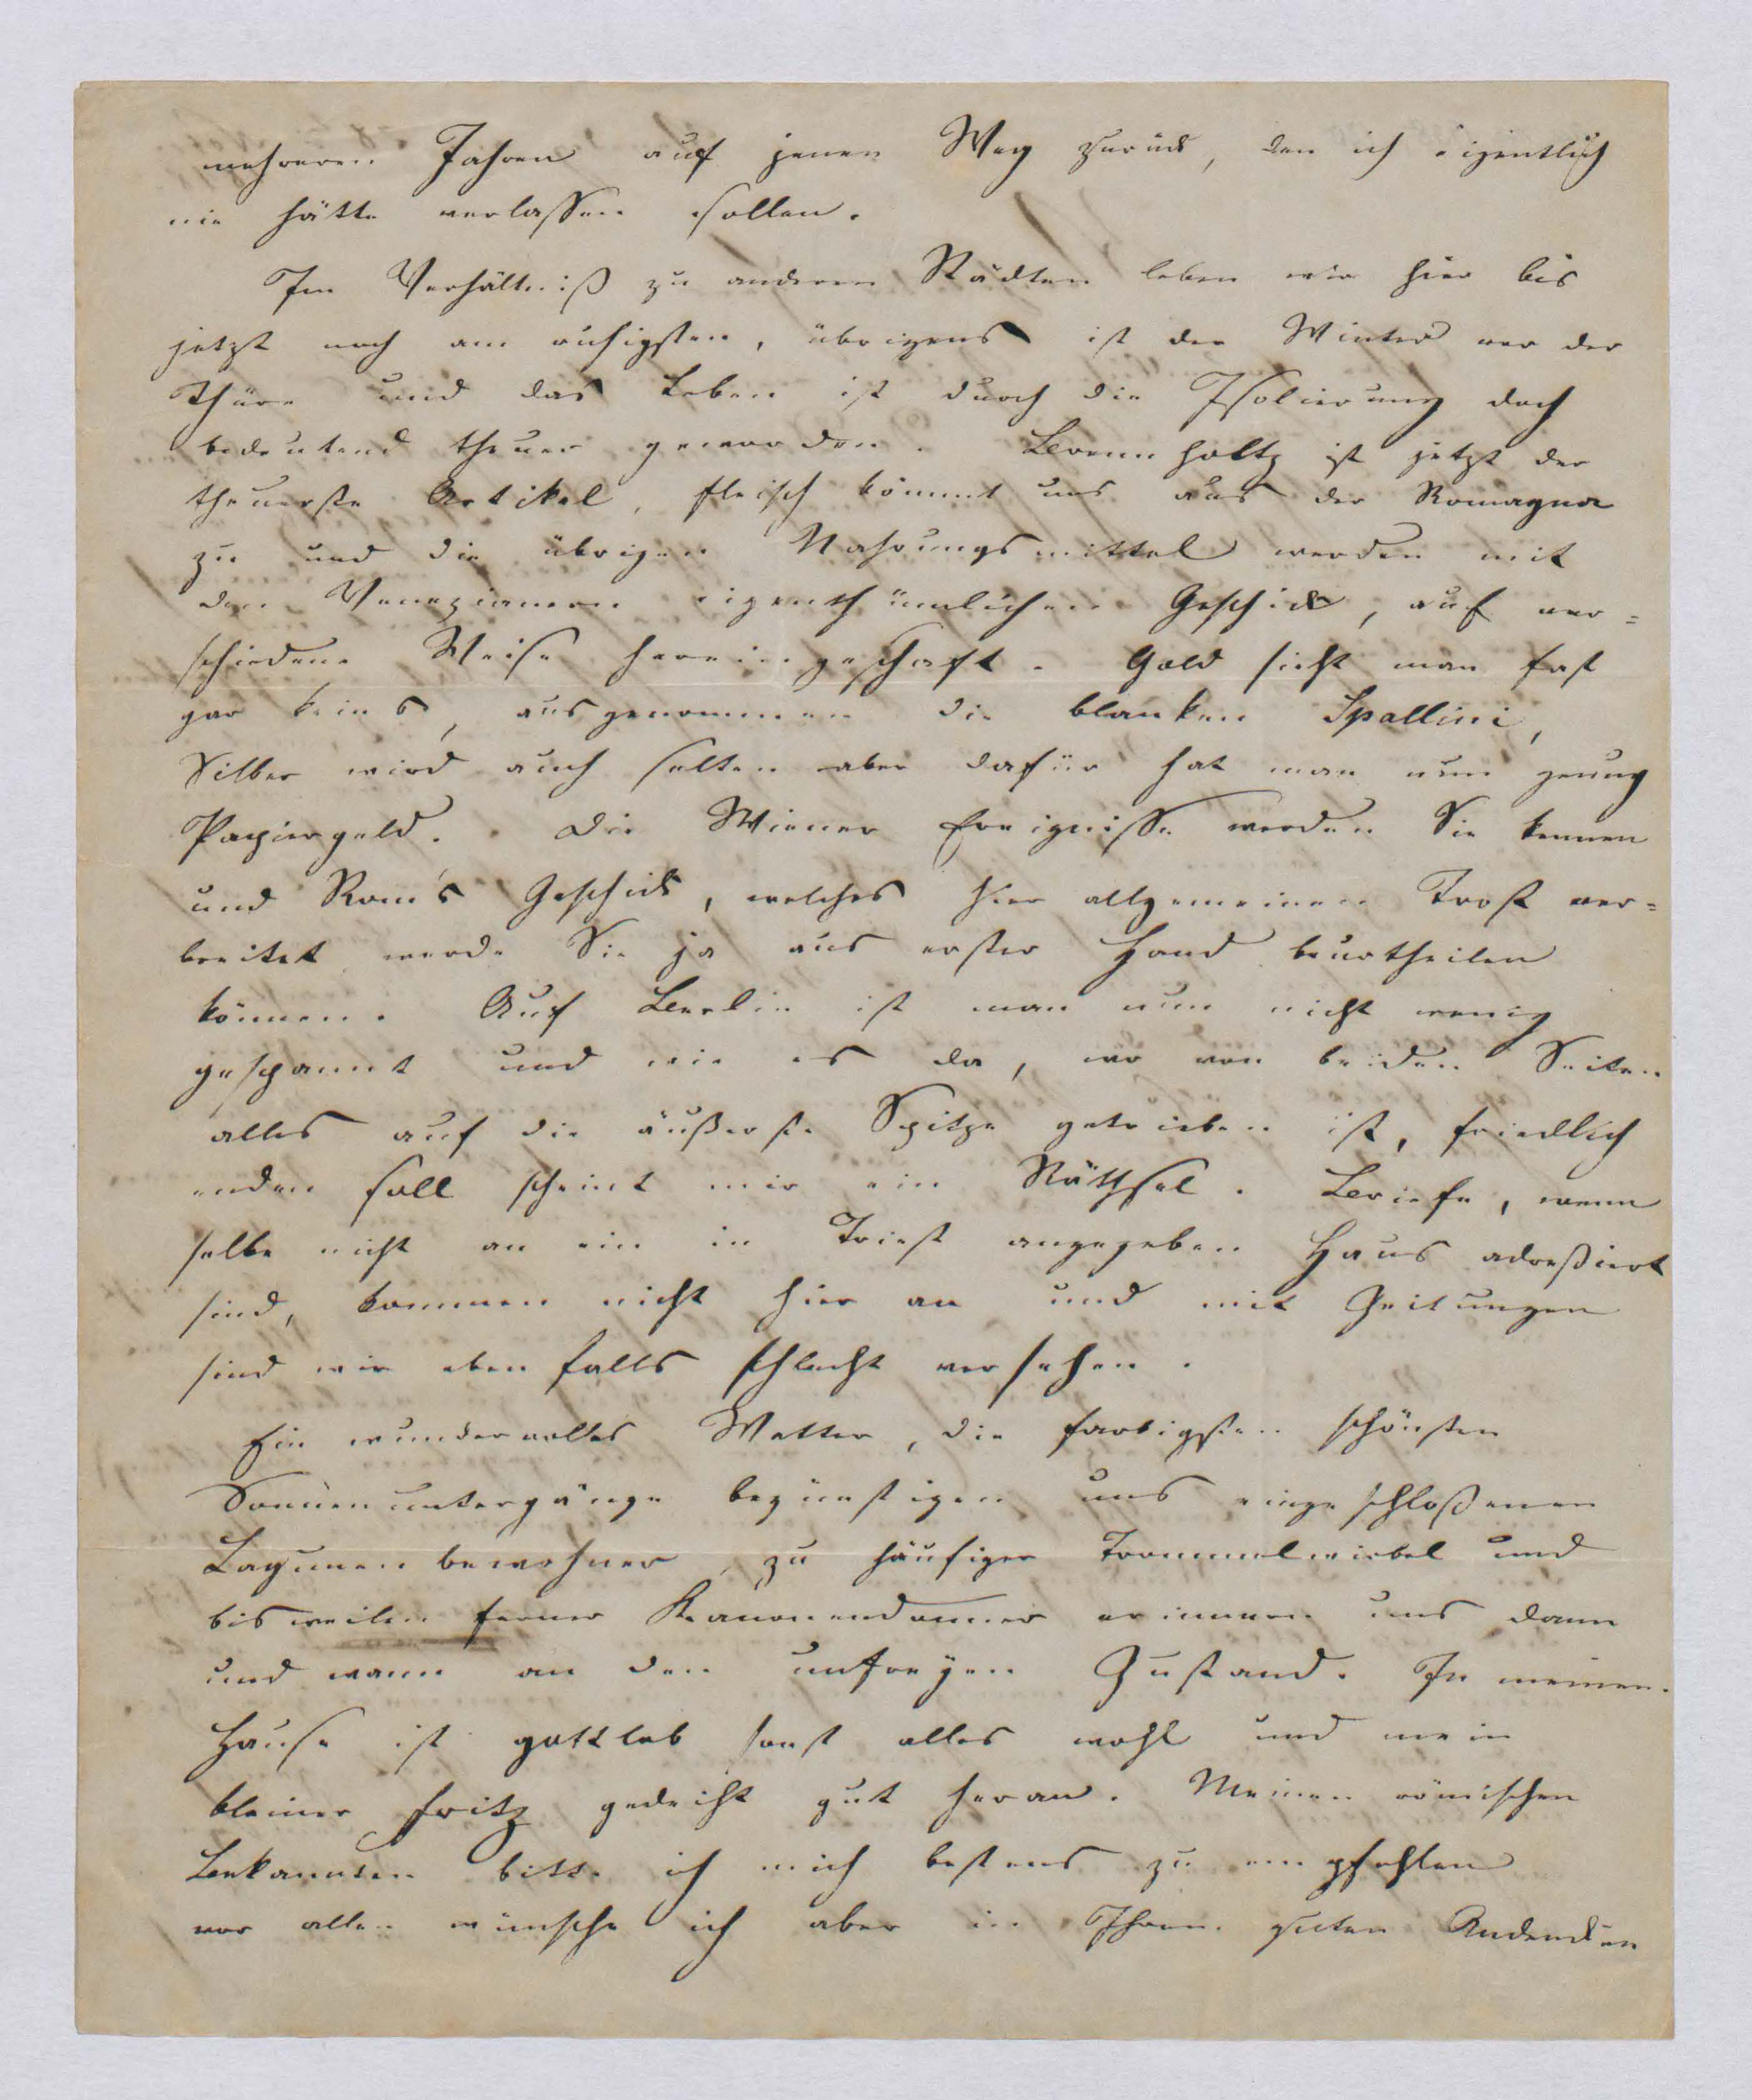 mehreren Jahren auf jenen Weg zurück, den ich eigentlich
nie hätte verlassen sollen.
Im Verhältniß zu anderen Städten leben wir hier bis
jetzt noch am ruhigsten, übrigens ist der Winter vor der
Thüre und das Leben ist durch die Isolierung doch
bedeutend theuer geworden. Brennholtz ist jetzt der
theuerste Artikel, Fleisch kömmt uns aus der Romagna
zu und die übrigen Nahrungsmittel werden mit
den Venezianern eigenthümlichen Geschick, auf ver=
schiedene Weise hereingeschaft. Gold sieht man fast
gar keins, ausgenommen die blanken Spallini,
Silber wird auch selten aber dafür hat man nun genug
Papiergeld. Die Wiener Ereignisse werden Sie kennen
und Rom's Geschick, welches hier allgemeinen Trost ver=
breitet werde Sie ja aus erster Hand beurtheilen
können. Auf Berlin ist man nun nicht wenig
gespannt und wie es da, wo von beiden Seiten
alles auf die äußerste Spitze getrieben ist, friedlich
enden soll scheint mir ein Räthsel. Briefe, wenn
selbe nicht an ein in Triest angegeben Haus adreßiert
sind, kommen nicht hier an und mit Zeitungen
sind wir eben falls schlecht versehen.
Ein wundervolles Wetter, die farbigsten schönsten
Sonnenuntergänge begünstigen uns eingeschloßenen
Lagunenbewohner, zu häufiger Trommelwirbel und
bisweilen ferner Kanonendonner erinnern uns dann
und wann an den unfreyen Zustand. In meinen
Hause ist gottlob sonst alles wohl und mein
kleiner Fritz gedeiht gut heran. Meinen römischen
Bekannten bitte ich mich bestens zu empfehlen
vor allen wünsche ich aber in Ihren guten Andencken